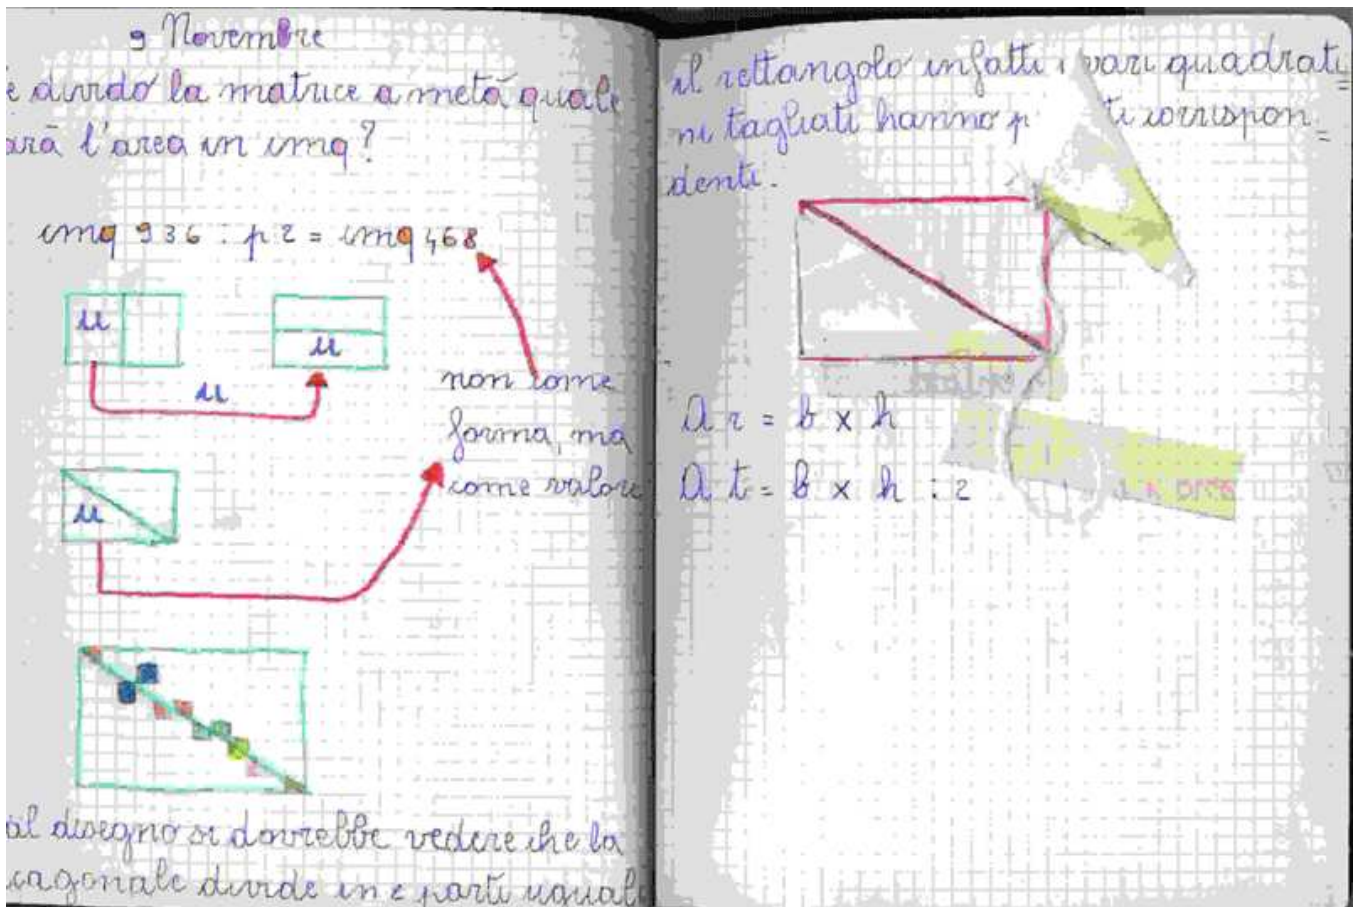 9 Novembre
e divido la matrice a metà quale
arà l'area in cmq?
cmq 936 : p 2 = cmq 468
u
u
u
non come
forma, ma
come valore
u
al disegno si dovrebbe vedere che la
iagonale divide in 2 parti uguali
il rettangolo infatti i vari quadrati=
ni tagliati hanno p ti corrispon=
denti.
A r = b x h
A t = b x h : 2